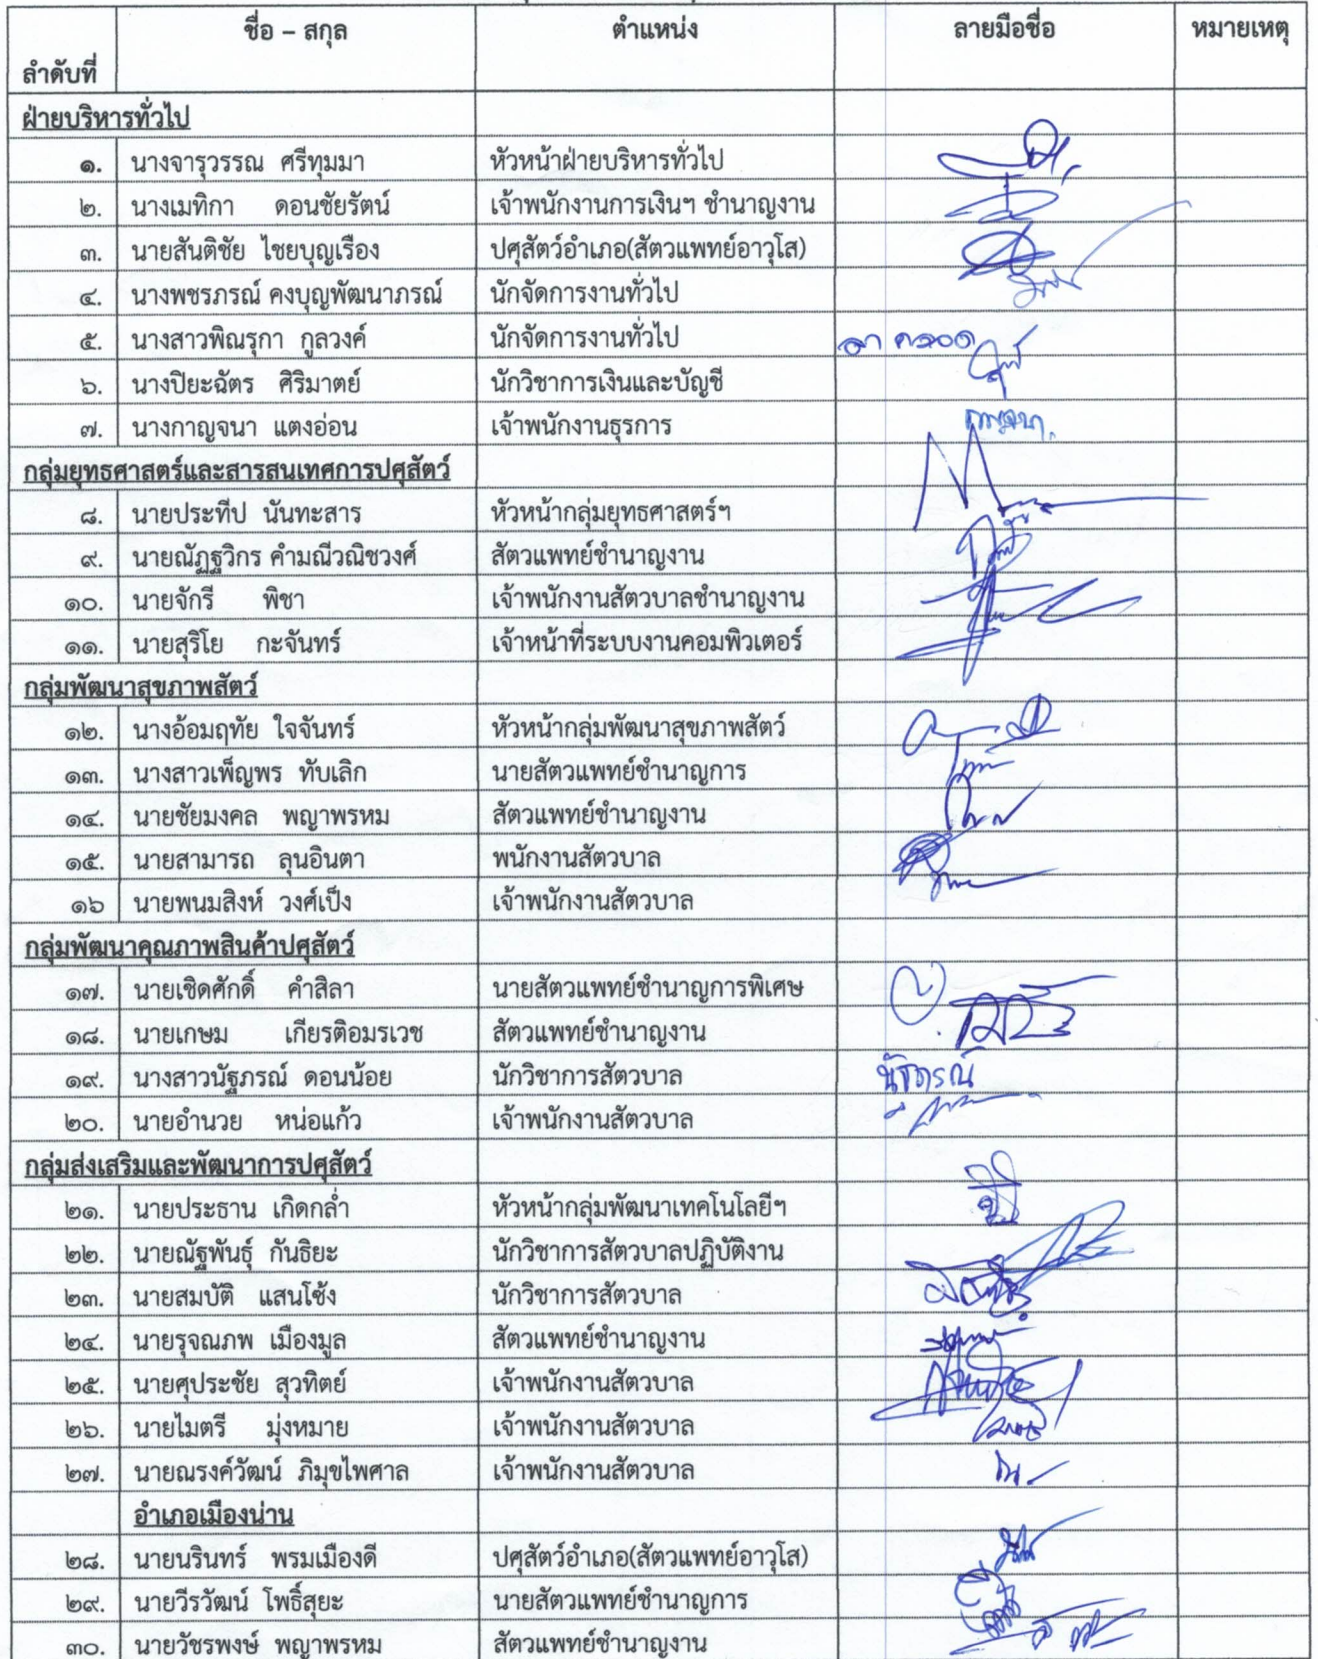 ลำดับที่ ชื่อ – สกุล ตำแหน่ง ลายมือชื่อ หมายเหตุ
ฝ่ายบริหารทั่วไป
๑. นางจารุวรรณ ศรีทุมมา หัวหน้าฝ่ายบริหารทั่วไป
๒. นางเมทิกา ดอนชัยรัตน์ เจ้าพนักงานการเงินฯ ชำนาญงาน
๓. นายสันติชัย ไชยบุญเรือง ปศุสัตว์อำเภอ(สัตวแพทย์อาวุโส)
๔. นางพชรภรณ์ คงบุญพัฒนาภรณ์ นักจัดการงานทั่วไป
๕. นางสาวพิณรุกา กูลวงค์ นักจัดการงานทั่วไป ลา คลอด
๖. นางปิยะฉัตร ศิริมาตย์ นักวิชาการเงินและบัญชี
๗. นางกาญจนา แตงอ่อน เจ้าพนักงานธุรการ กาญจนา.
กลุ่มยุทธศาสตร์และสารสนเทศการปศุสัตว์
๘. นายประทีป นันทะสาร หัวหน้ากลุ่มยุทธศาสตร์ฯ
๙. นายณัฏฐวิกร คำมณีวณิชวงศ์ สัตวแพทย์ชำนาญงาน
๑๐. นายจักรี พิชา เจ้าพนักงานสัตวบาลชำนาญงาน
๑๑. นายสุริโย กะจันทร์ เจ้าหน้าที่ระบบงานคอมพิวเตอร์
กลุ่มพัฒนาสุขภาพสัตว์
๑๒. นางอ้อมฤทัย ใจจันทร์ หัวหน้ากลุ่มพัฒนาสุขภาพสัตว์
๑๓. นางสาวเพ็ญพร ทับเลิก นายสัตวแพทย์ชำนาญการ
๑๔. นายชัยมงคล พญาพรหม สัตวแพทย์ชำนาญงาน
๑๕. นายสามารถ ลุนอินตา พนักงานสัตวบาล
๑๖ นายพนมสิงห์ วงศ์เป็ง เจ้าพนักงานสัตวบาล
กลุ่มพัฒนาคุณภาพสินค้าปศุสัตว์
๑๗. นายเชิดศักดิ์ คำสิลา นายสัตวแพทย์ชำนาญการพิเศษ
๑๘. นายเกษม เกียรติอมรเวช สัตวแพทย์ชำนาญงาน
๑๙. นางสาวนัฐภรณ์ ดอนน้อย นักวิชาการสัตวบาล นัฐภรณ์
๒๐. นายอำนวย หน่อแก้ว เจ้าพนักงานสัตวบาล
กลุ่มส่งเสริมและพัฒนาการปศุสัตว์
๒๑. นายประธาน เกิดกล่ำ หัวหน้ากลุ่มพัฒนาเทคโนโลยีฯ
๒๒. นายณัฐพันธุ์ กันธิยะ นักวิชาการสัตวบาลปฏิบัติงาน
๒๓. นายสมบัติ แสนโซ้ง นักวิชาการสัตวบาล
๒๔. นายรุจณภพ เมืองมูล สัตวแพทย์ชำนาญงาน
๒๕. นายศุประชัย สุวทิตย์ เจ้าพนักงานสัตวบาล
๒๖. นายไมตรี มุ่งหมาย เจ้าพนักงานสัตวบาล
๒๗. นายณรงค์วัฒน์ ภิมุขไพศาล เจ้าพนักงานสัตวบาล
อำเภอเมืองน่าน
๒๘. นายนรินทร์ พรมเมืองดี ปศุสัตว์อำเภอ(สัตวแพทย์อาวุโส)
๒๙. นายวีรวัฒน์ โพธิ์สุยะ นายสัตวแพทย์ชำนาญการ
๓๐. นายวัชรพงษ์ พญาพรหม สัตวแพทย์ชำนาญงาน